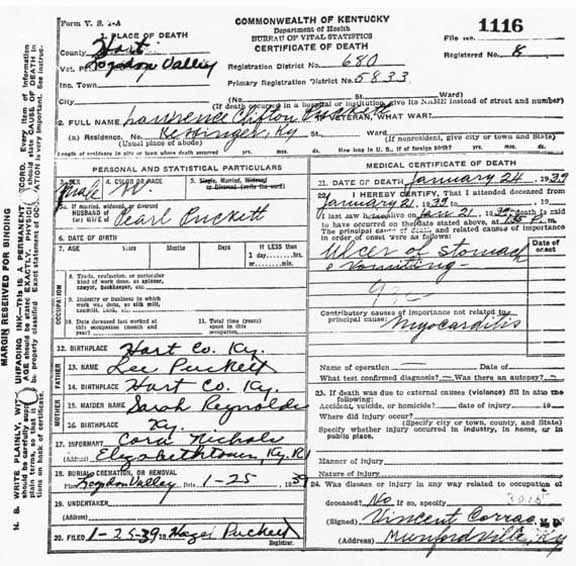 Form V. S. 1-A
COMMONWEALTH OF KENTUCKY
Department of Health
BUREAU OF VITAL STATISTICS
CERTIFICATE OF DEATH
File No. 1116
Registered No. 8
1. PLACE OF DEATH
County Hart
Vot. Pct. Logdon Valley
Inc. Town
City
Registration District No. 680
Primary Registration District No. 5833
(No. St. Ward)
(If death occurred in a hospital or institution, give its NAME instead of street and number)
2. FULL NAME Lawrence Clifton Puckett VETERAN, WHAT WAR
(a) Residence. No. Kessinger, Ky St. Ward
(Usual place of abode) (If nonresident, give city or town and State)
Length of residence in city or town where death occurred yrs. mos. ds. How long in U. S., if of foreign birth? yrs. mos. ds.
PERSONAL AND STATISTICAL PARTICULARS
3. SEX Male 4. COLOR OR RACE W. 5. Single, Married, Widowed or Divorced (write the word)
5a. If married, widowed, or divorced
HUSBAND of
(or) WIFE of Pearl Puckett
6. DATE OF BIRTH
7. AGE Years Months Days If LESS than
1 day, hrs.
or min.
OCCUPATION
8. Trade, profession, or particular
kind of work done, as spinner,
sawyer, bookkeeper, etc.
9. Industry or business in which
work was done, as silk mill,
sawmill, bank, etc.
10. Date deceased last worked at
this occupation (month and
year)
11. Total time (years)
spent in this
occupation
12. BIRTHPLACE Hart Co. Ky.
FATHER
13. NAME Lee Puckett
14. BIRTHPLACE Hart Co. Ky.
MOTHER
15. MAIDEN NAME Sarah Reynolds
16. BIRTHPLACE Ky.
17. INFORMANT Cora Nichols
(Address) Elizabethtown, Ky. R1
18. BURIAL, CREMATION, OR REMOVAL
Place Logdon Valley Date 1-25 1939
19. UNDERTAKER
(Address)
20. FILED 1-25-39 19 Hazel Puckett
Registrar.
MEDICAL CERTIFICATE OF DEATH
21. DATE OF DEATH January 24, 1939
22. I HEREBY CERTIFY, That I attended deceased from
January 21, 1939, to 19
I last saw h alive on Jan 21, 1939, death is said
to have occurred on the date stated above, at P m.
The principal cause of death and related causes of importance
in order of onset were as follows:
Date of onset
Ulcer of stomach
& vomiting
Contributory causes of importance not related to
principal cause:
Myocarditis
Name of operation Date of
What test confirmed diagnosis? Was there an autopsy?
23. If death was due to external causes (violence) fill in also the
following:
Accident, suicide, or homicide? date of injury 19
Where did injury occur?
(Specify city or town, county, and State)
Specify whether injury occurred in industry, in home, or in
public place.
Manner of injury
Nature of injury
24. Was disease or injury in any way related to occupation of
deceased? No If so, specify
(Signed) Vincent Corrao M.D.
(Address) Munfordville, Ky
MARGIN RESERVED FOR BINDING